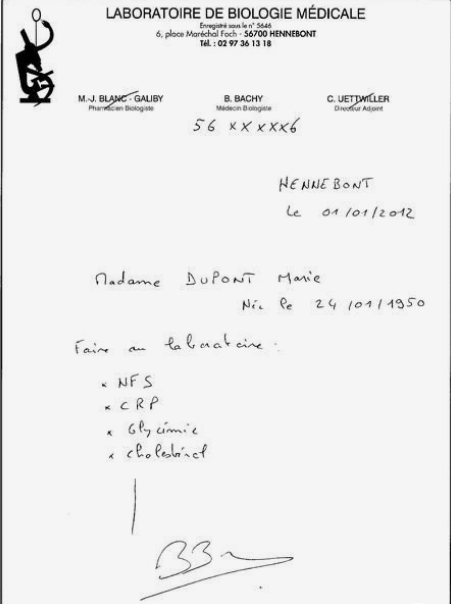 LABORATOIRE DE BIOLOGIE MÉDICALE
Enregistré sous le n° 5646
6, place Maréchal Foch - 56700 HENNEBONT
Tél. : 02 97 36 13 18
M.-J. BLANC - GALIBY B. BACHY C. UETTWILLER
Pharmacien Biologiste Médecin Biologiste Directeur Adjoint
56 XXXXX6
HENNEBONT
Le 01/01/2012
Madame DUPONT Marie
Née le 24/01/1950
Faire au laboratoire :
x NFS
x CRP
x Glycémie
x Cholestérol